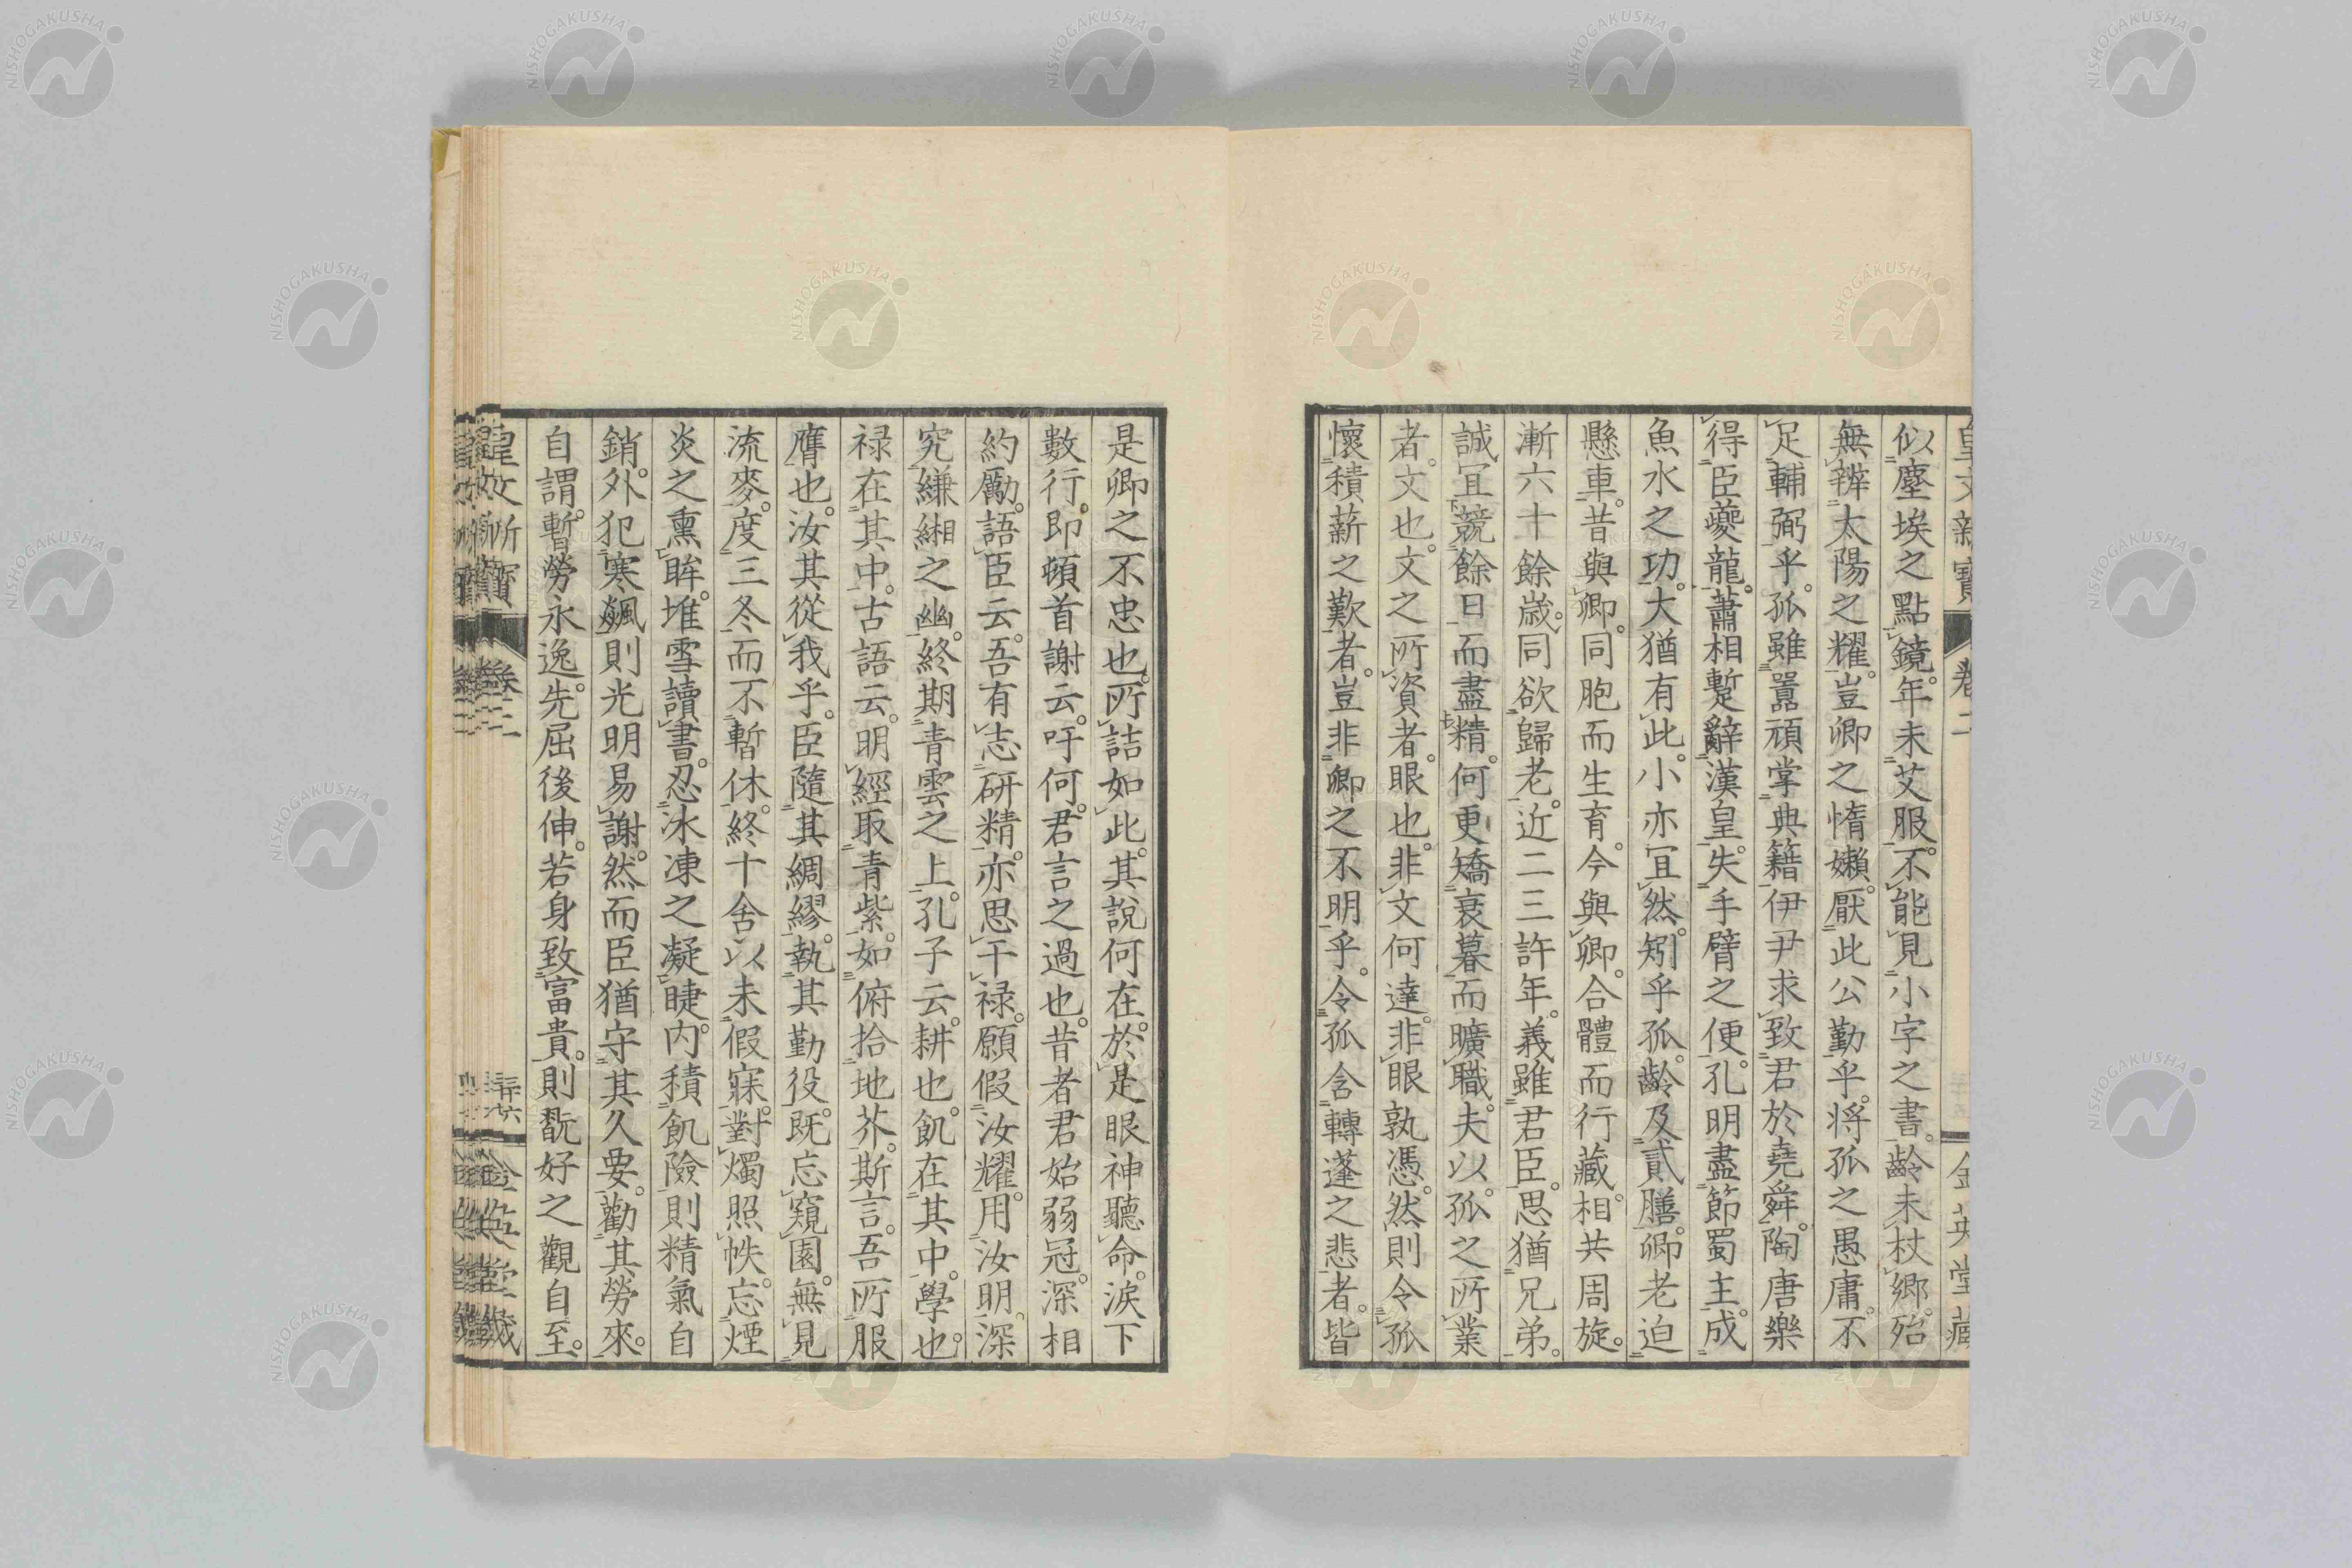 皇文新寶 卷二 金英堂藏
似塵埃之點鏡。年未艾服。不能見小字之書。齡未杖鄉。殆
無辨太陽之耀。豈卿之惰嬾。厭此公勤乎。將孤之愚庸。不
足輔弼乎。孤雖嚚頑掌典籍。伊尹求致君於堯舜。陶唐樂
得臣夔龍。蕭相蹔辭漢皇。失手臂之便。孔明盡節蜀主。成
魚水之功。大猶有此。小亦宜然。矧乎孤。齡及貳膳。卿老迫
懸車。昔與卿。同胞而生育。今與卿。合體而行藏。相共周旋。
漸六十餘歲。同欲歸老。近二三許年。義雖君臣。思猶兄弟。
誠宜競餘日而盡精。何更矯衰暮而曠職。夫以。孤之所業
者。文也。文之所資者。眼也。非文何達。非眼孰憑。然則令孤
懷積薪之歎者。豈非卿之不明乎。令孤含轉蓬之悲者。皆
是卿之不忠也。所詰如此。其說何在。於是眼神聽命。淚下
數行。即頓首謝云。吁何。君言之過也。昔者君始弱冠。深相
約勵。語臣云。吾有志研精。亦思干祿。願假汝耀。用汝明。深
究縑緗之幽。終期青雲之上。孔子云。耕也。飢在其中。學也。
祿在其中。古語云。明經取青紫。如俯拾地芥。斯言。吾所服
膺也。汝其從我乎。臣隨其綢繆。執其勤役。既忘窺園。無見
流麥。度三冬而不暫休。終十舍以未假寐。對燭照帙。忘煙
炎之熏眸。堆雪讀書。忍冰凍之凝睫。內積飢險則精氣自
銷。外犯寒飈則光明易謝。然而臣猶守其久要。勸其勞來。
自謂。暫勞永逸。先屈後伸。若身致富貴。則翫好之觀自至。
皇文新寶 卷二 金英堂藏